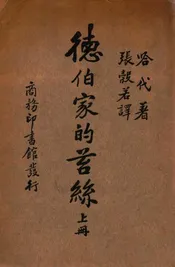 哈代著
張穀若譯
德伯家的苔絲
上冊
商務印書館發行